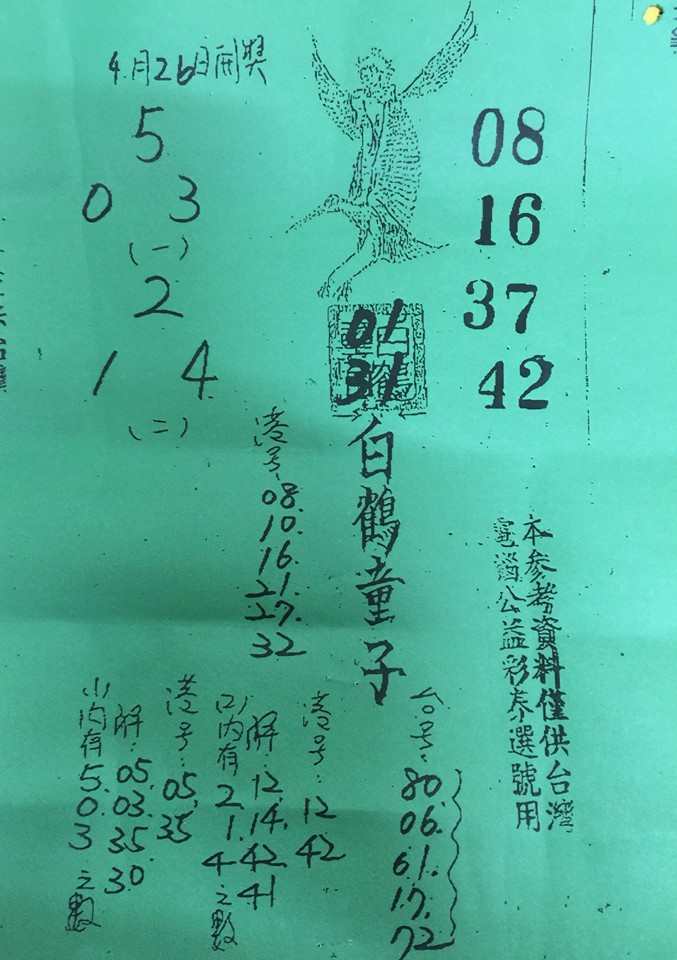 4月26日開獎
5
0 3
(一)
2
1 4
(二)
08
16
37
42
01
31
白鶴童子
港号:
08.
10.
16.
21.
27.
32
本參考資料僅供台灣
電腦公益彩券選號用
台号:
80.
06.
61.
17.
72
港号:
12
42
解:
12.
14.
42
41
(二)內有
2.
1.
4
之數
港号:
05
35
解:
05.
03.
35.
30
(一)內有
5.
0.
3
之數